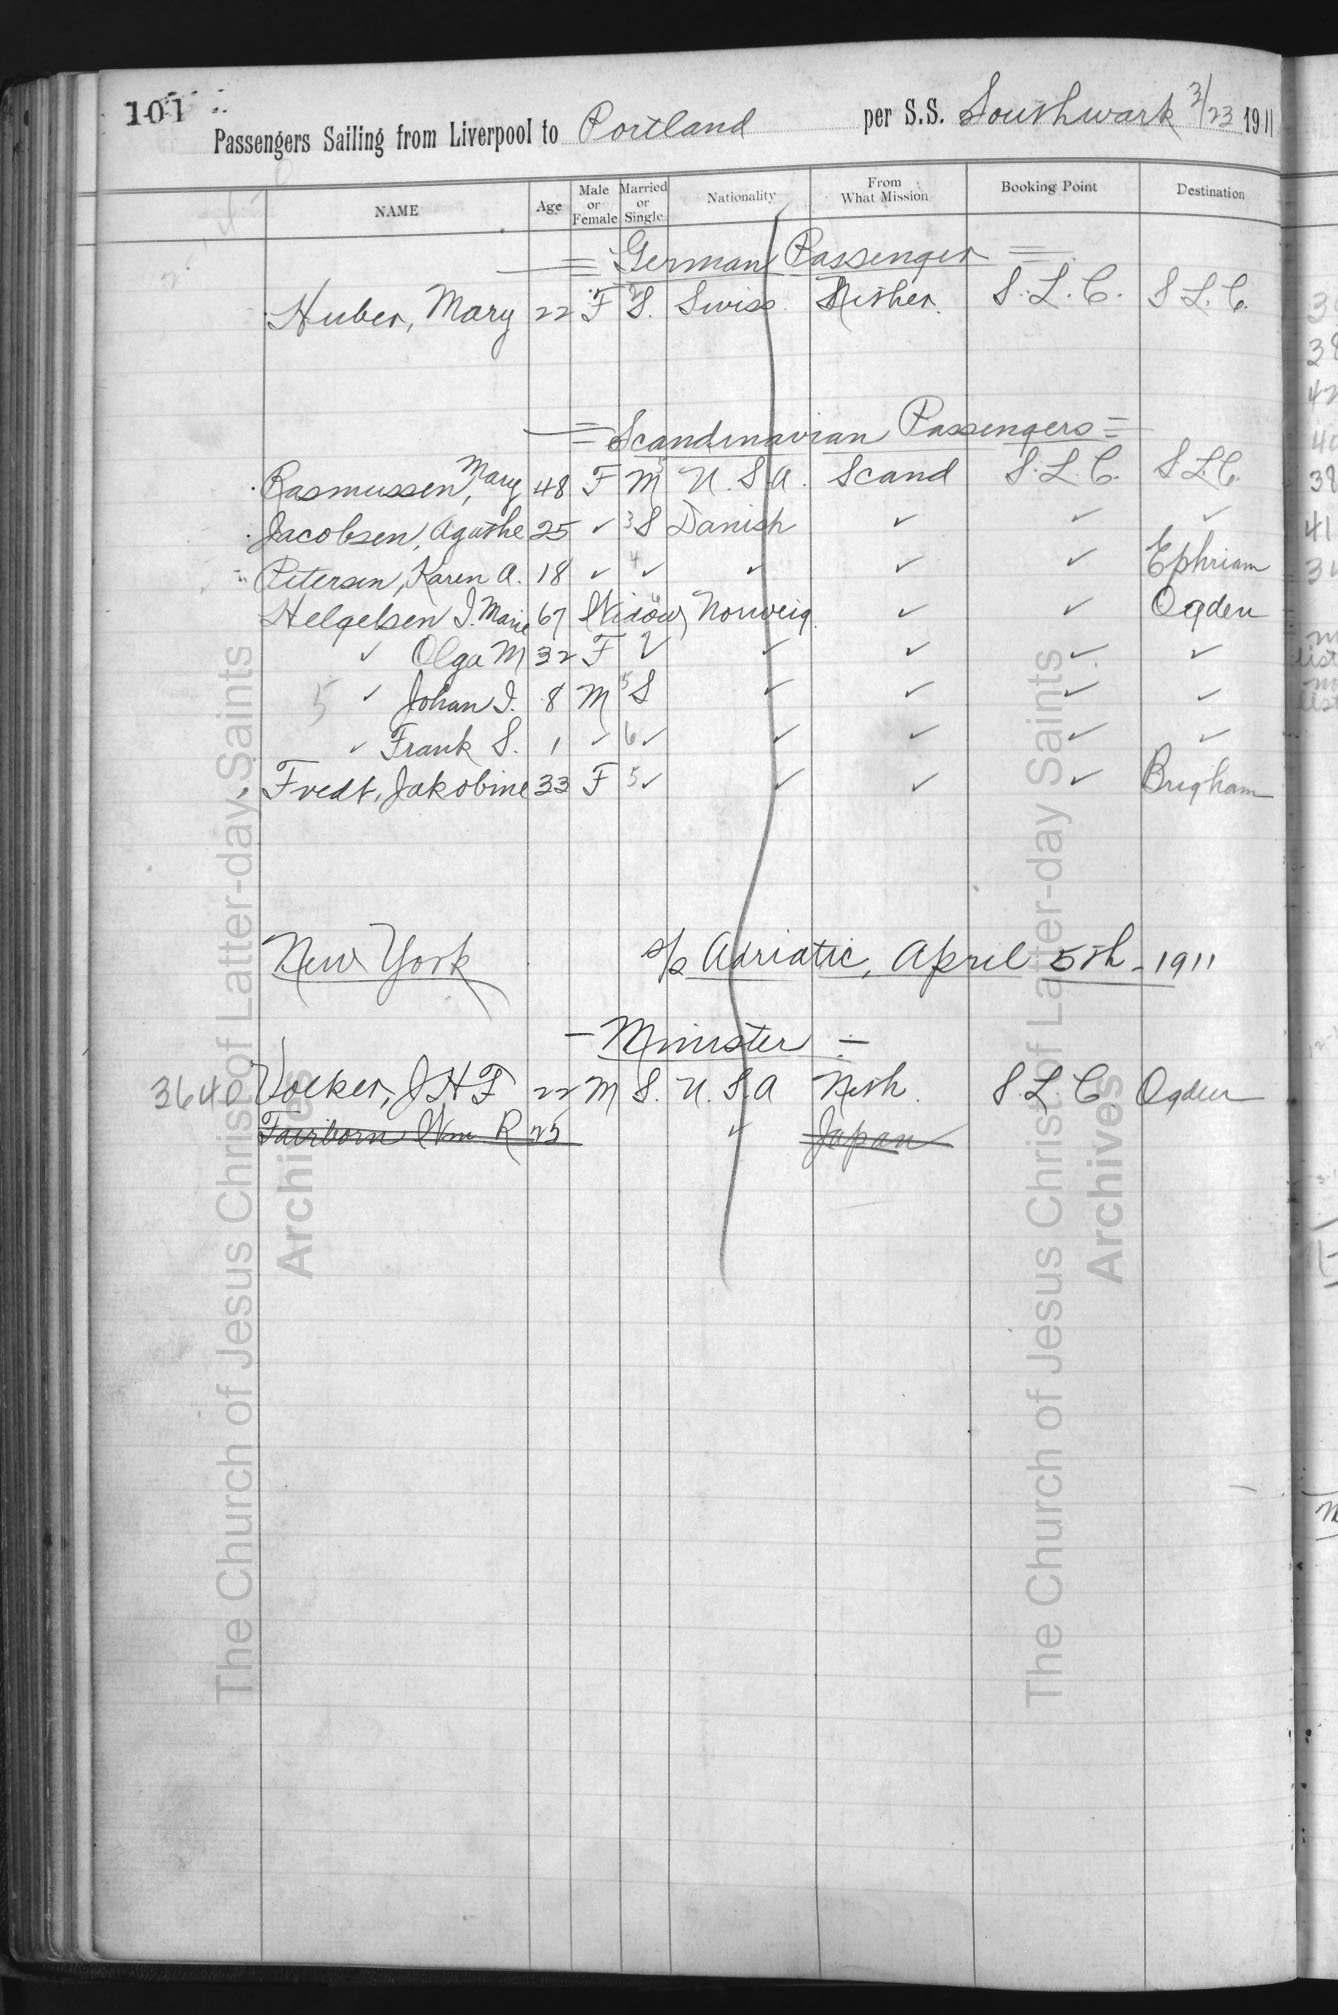 101
Passengers Sailing from Liverpool to Portland per S.S. Southwark 3/23 1911
NAME Age Male or Female Married or Single Nationality From What Mission Booking Point Destination
German Passenger
Huber, Mary 22 F S. Swiss. Nether. S.L.C. S.L.C.
Scandinavian Passengers
Rasmussen, Mary 48 F M U.S.A. Scand S.L.C. S.L.C.
Jacobsen, Agathe 25 ✓ 3 S Danish ✓ ✓ ✓
Petersen, Karen A. 18 ✓ 4 ✓ ✓ ✓ ✓ Ephriam
Helgesen I. Marie 67 Widow Norweig. ✓ ✓ Ogden
✓ Olga M 32 F ✓ ✓ ✓ ✓ ✓
5 ✓ Johan I. 8 M 5 S ✓ ✓ ✓ ✓
✓ Frank S. 1 ✓ 6 ✓ ✓ ✓ ✓ ✓
Fredt, Jakobine 33 F 5 ✓ ✓ ✓ ✓ Brigham
New York s/s Adriatic, April 5th - 1911
- Minister -
3640 Volker, J H F 22 M S. U.S.A Neth. S.L.C Ogden
Fairborn Wm R 25 ✓ Japan
The Church of Jesus Christ of Latter-day Saints
Archives
The Church of Jesus Christ of Latter-day Saints
Archives